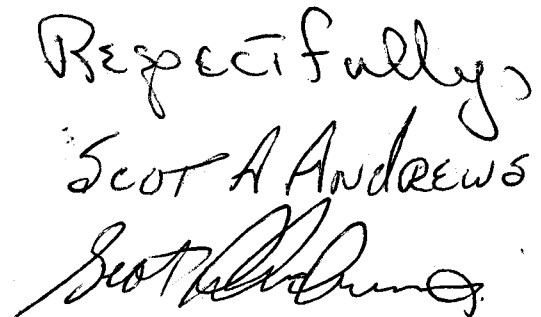 Respectfully,
Scot A Andrews
Scot A Andrews